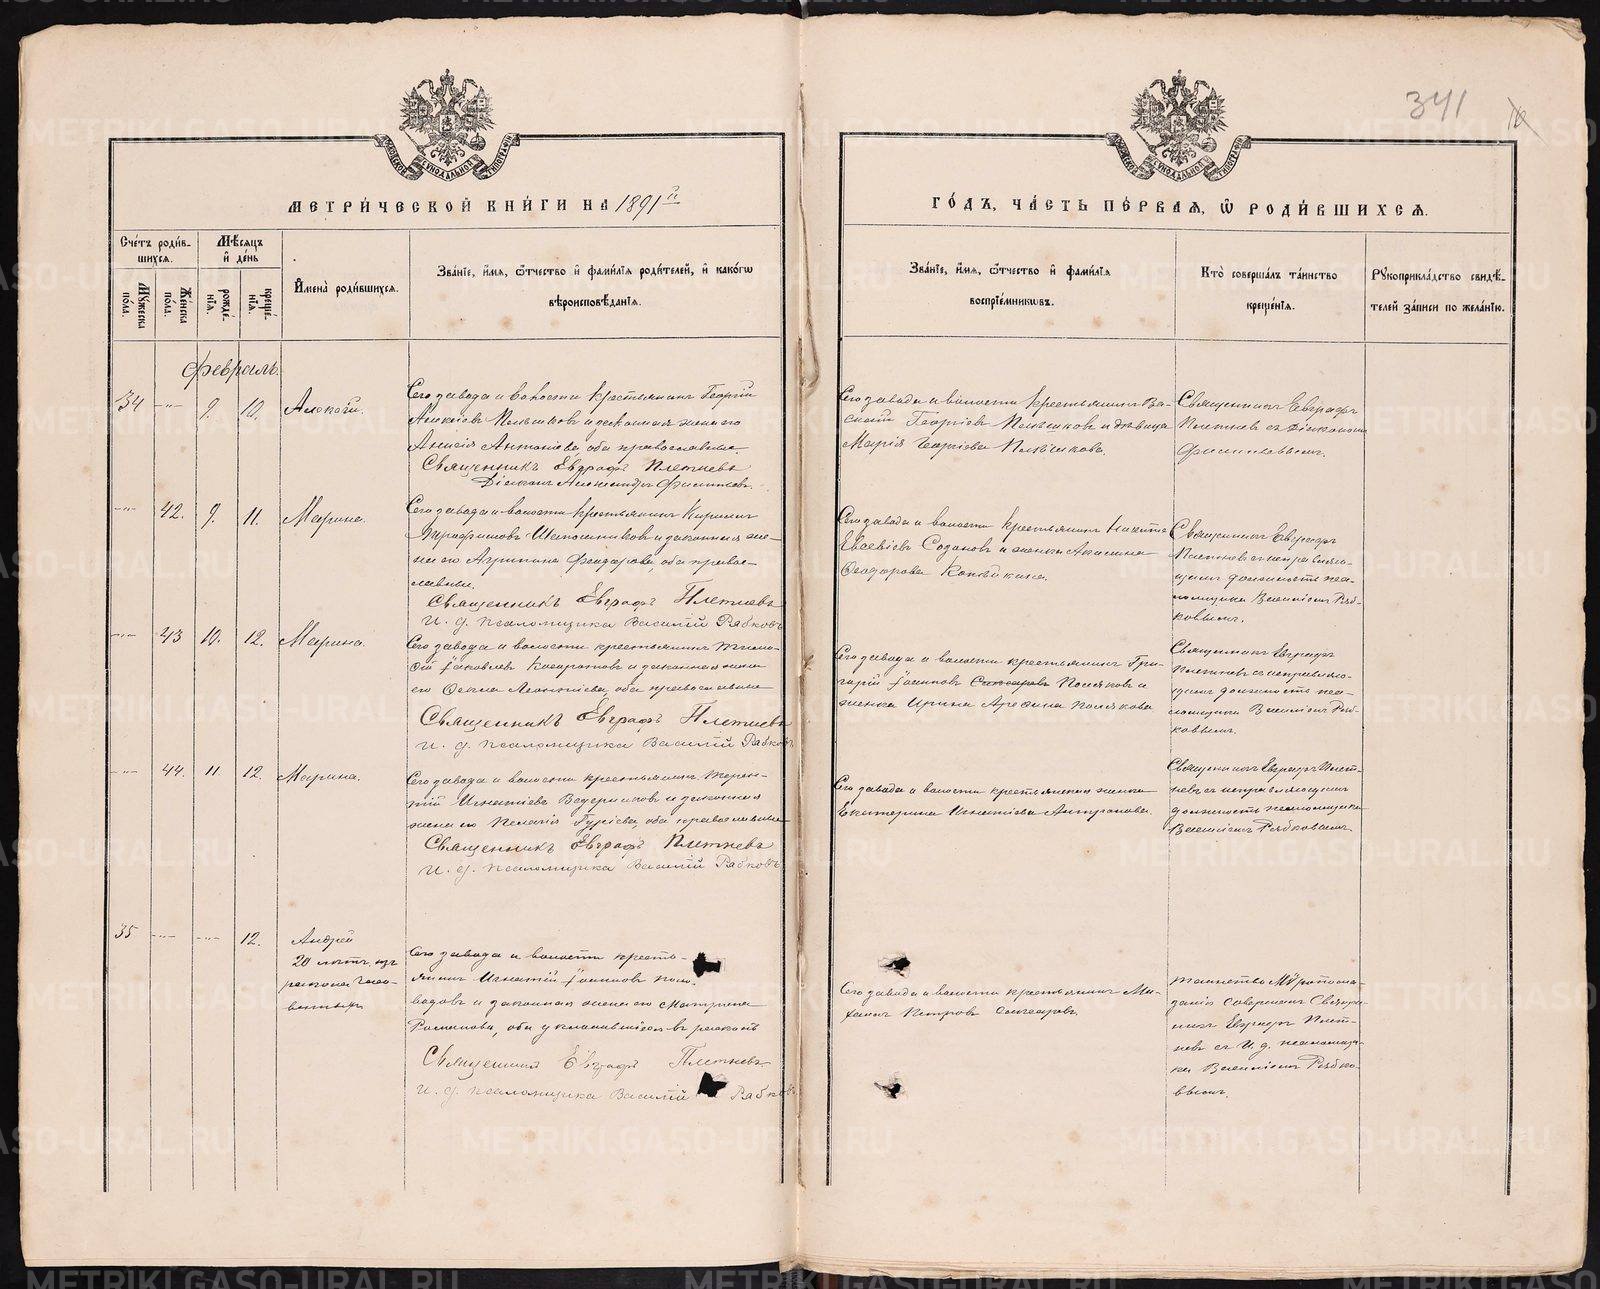 341
МОСКОВСКОЙ СѴНОДАЛЬНОЙ ТИПОГРАФІИ
МОСКОВСКОЙ СѴНОДАЛЬНОЙ ТИПОГРАФІИ
МЕТРИ́ЧЕСКОЙ КНИ́ГИ НА 1891й
ГО́ДЪ, ЧА́СТЬ ПЕ́РВАЯ, Ѡ РОДИ́ВШИХСЯ.
Сче́тъ роди́в-
шихся.
Му́жеска по́ла.
Же́нска по́ла.
Мѣ́сяцъ
и де́нь
рожде́-
нія.
креще́-
нія.
Имена̀ роди́вшихся.
Зва́ніе, и́мя, ѻ́тчество и фами́лія роди́телей, и како́гѡ
вѣроисповѣ́данія.
Зва́ніе, и́мя, ѻ́тчество и фами́лія
воспріе́мниковъ.
Кто̀ соверша́лъ та́инство
креще́нія.
Рукоприкла́дство свидѣ́-
телей за́писи по жела́нію.
Февраль.
34 -"- 9. 10. Алексѣй.
Сего завода и волости крестьянинъ Георгій
и законная жена его
Анисія Антонова, оба православные.
Священникъ Евграфъ Плетневъ
Діаконъ Александръ
Сего завода и волости крестьянинъ Ва-
силій Георгіевъ и дѣвица
Марія Георгіева
Священникъ Евграфъ
Плетневъ съ Діакономъ
-"- 42. 9. 11. Марина.
Сего завода и волости крестьянинъ Кириллъ
Шапошниковъ и законная же-
на его Агрипина Феодорова, оба право-
славные.
Священникъ Евграфъ Плетневъ
И. д. псаломщика Василій Рябковъ
Сего завода и волости крестьянинъ Никита
Евсевіевъ и женка
Феодорова
Священникъ Евграфъ
Плетневъ съ исправляю-
щимъ должность пса-
ломщика Василіемъ Ряб-
ковымъ.
-"- 43 10. 12. Марина.
Сего завода и волости крестьянинъ Тимо-
фей Іаковлевъ и законная жена
его Леонтіева, оба православные
Священникъ Евграфъ Плетневъ
И. д. псаломщика Василій Рябковъ
Сего завода и волости крестьянинъ Гри-
горій Іоанновъ Поляковъ и
женка Ирина Полякова
Священникъ Евграфъ
Плетневъ съ исправляю-
щимъ должность пса-
ломщика Василіемъ Ряб-
ковымъ.
-"- 44. 11. 12. Марина.
Сего завода и волости крестьянинъ Терен-
тій Игнатіевъ Ведерниковъ и законная
жена его Пелагія Гуріева, оба православные
Священникъ Евграфъ Плетневъ
И. д. псаломщика Василій Рябковъ
Сего завода и волости крестьянская женка
Екатерина Игнатіева Антропова.
Священникъ Евграфъ Плет-
невъ съ исправляющимъ
должность псаломщика
Василіемъ Рябковымъ
35 -"- -"- 12. Андрей
20 лѣтъ, изъ
раскола
Сего завода и волости кресть-
янинъ Игнатій Іоанновъ
и законная жена его Матрона
Романова, оба уклонившіеся въ расколъ
Священникъ Евграфъ Плетневъ
И. д. псаломщика Василій Рябковъ
Сего завода и волости крестьянинъ Ми-
хаилъ Петровъ
Таинство Мѵропома-
занія совершилъ Священ-
никъ Евграфъ Плет-
невъ съ И. д. псаломщи-
ка Василіемъ Рябко-
вымъ.
METRIKI.GASO-URAL.RU